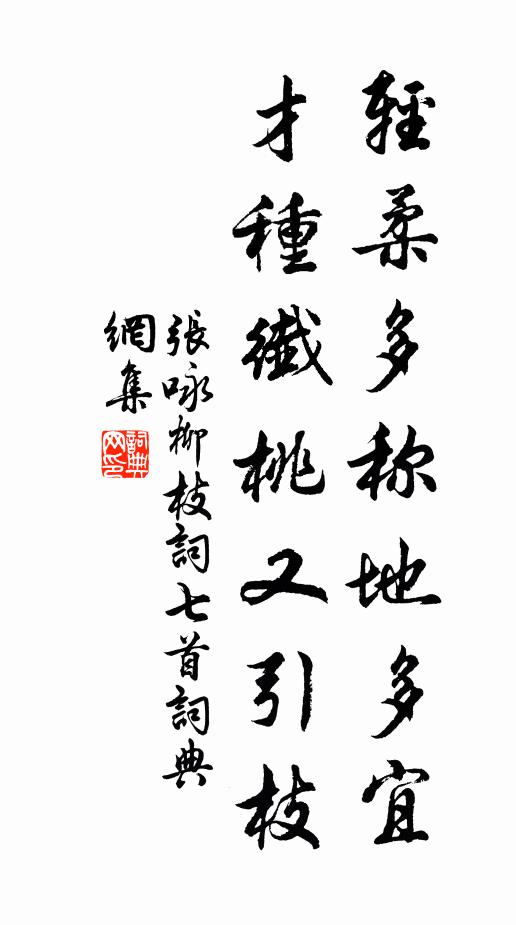 輕柔多称地多宜
才種纖桃又引枝
張咏柳枝詞七首詞典
網集
詞典网印